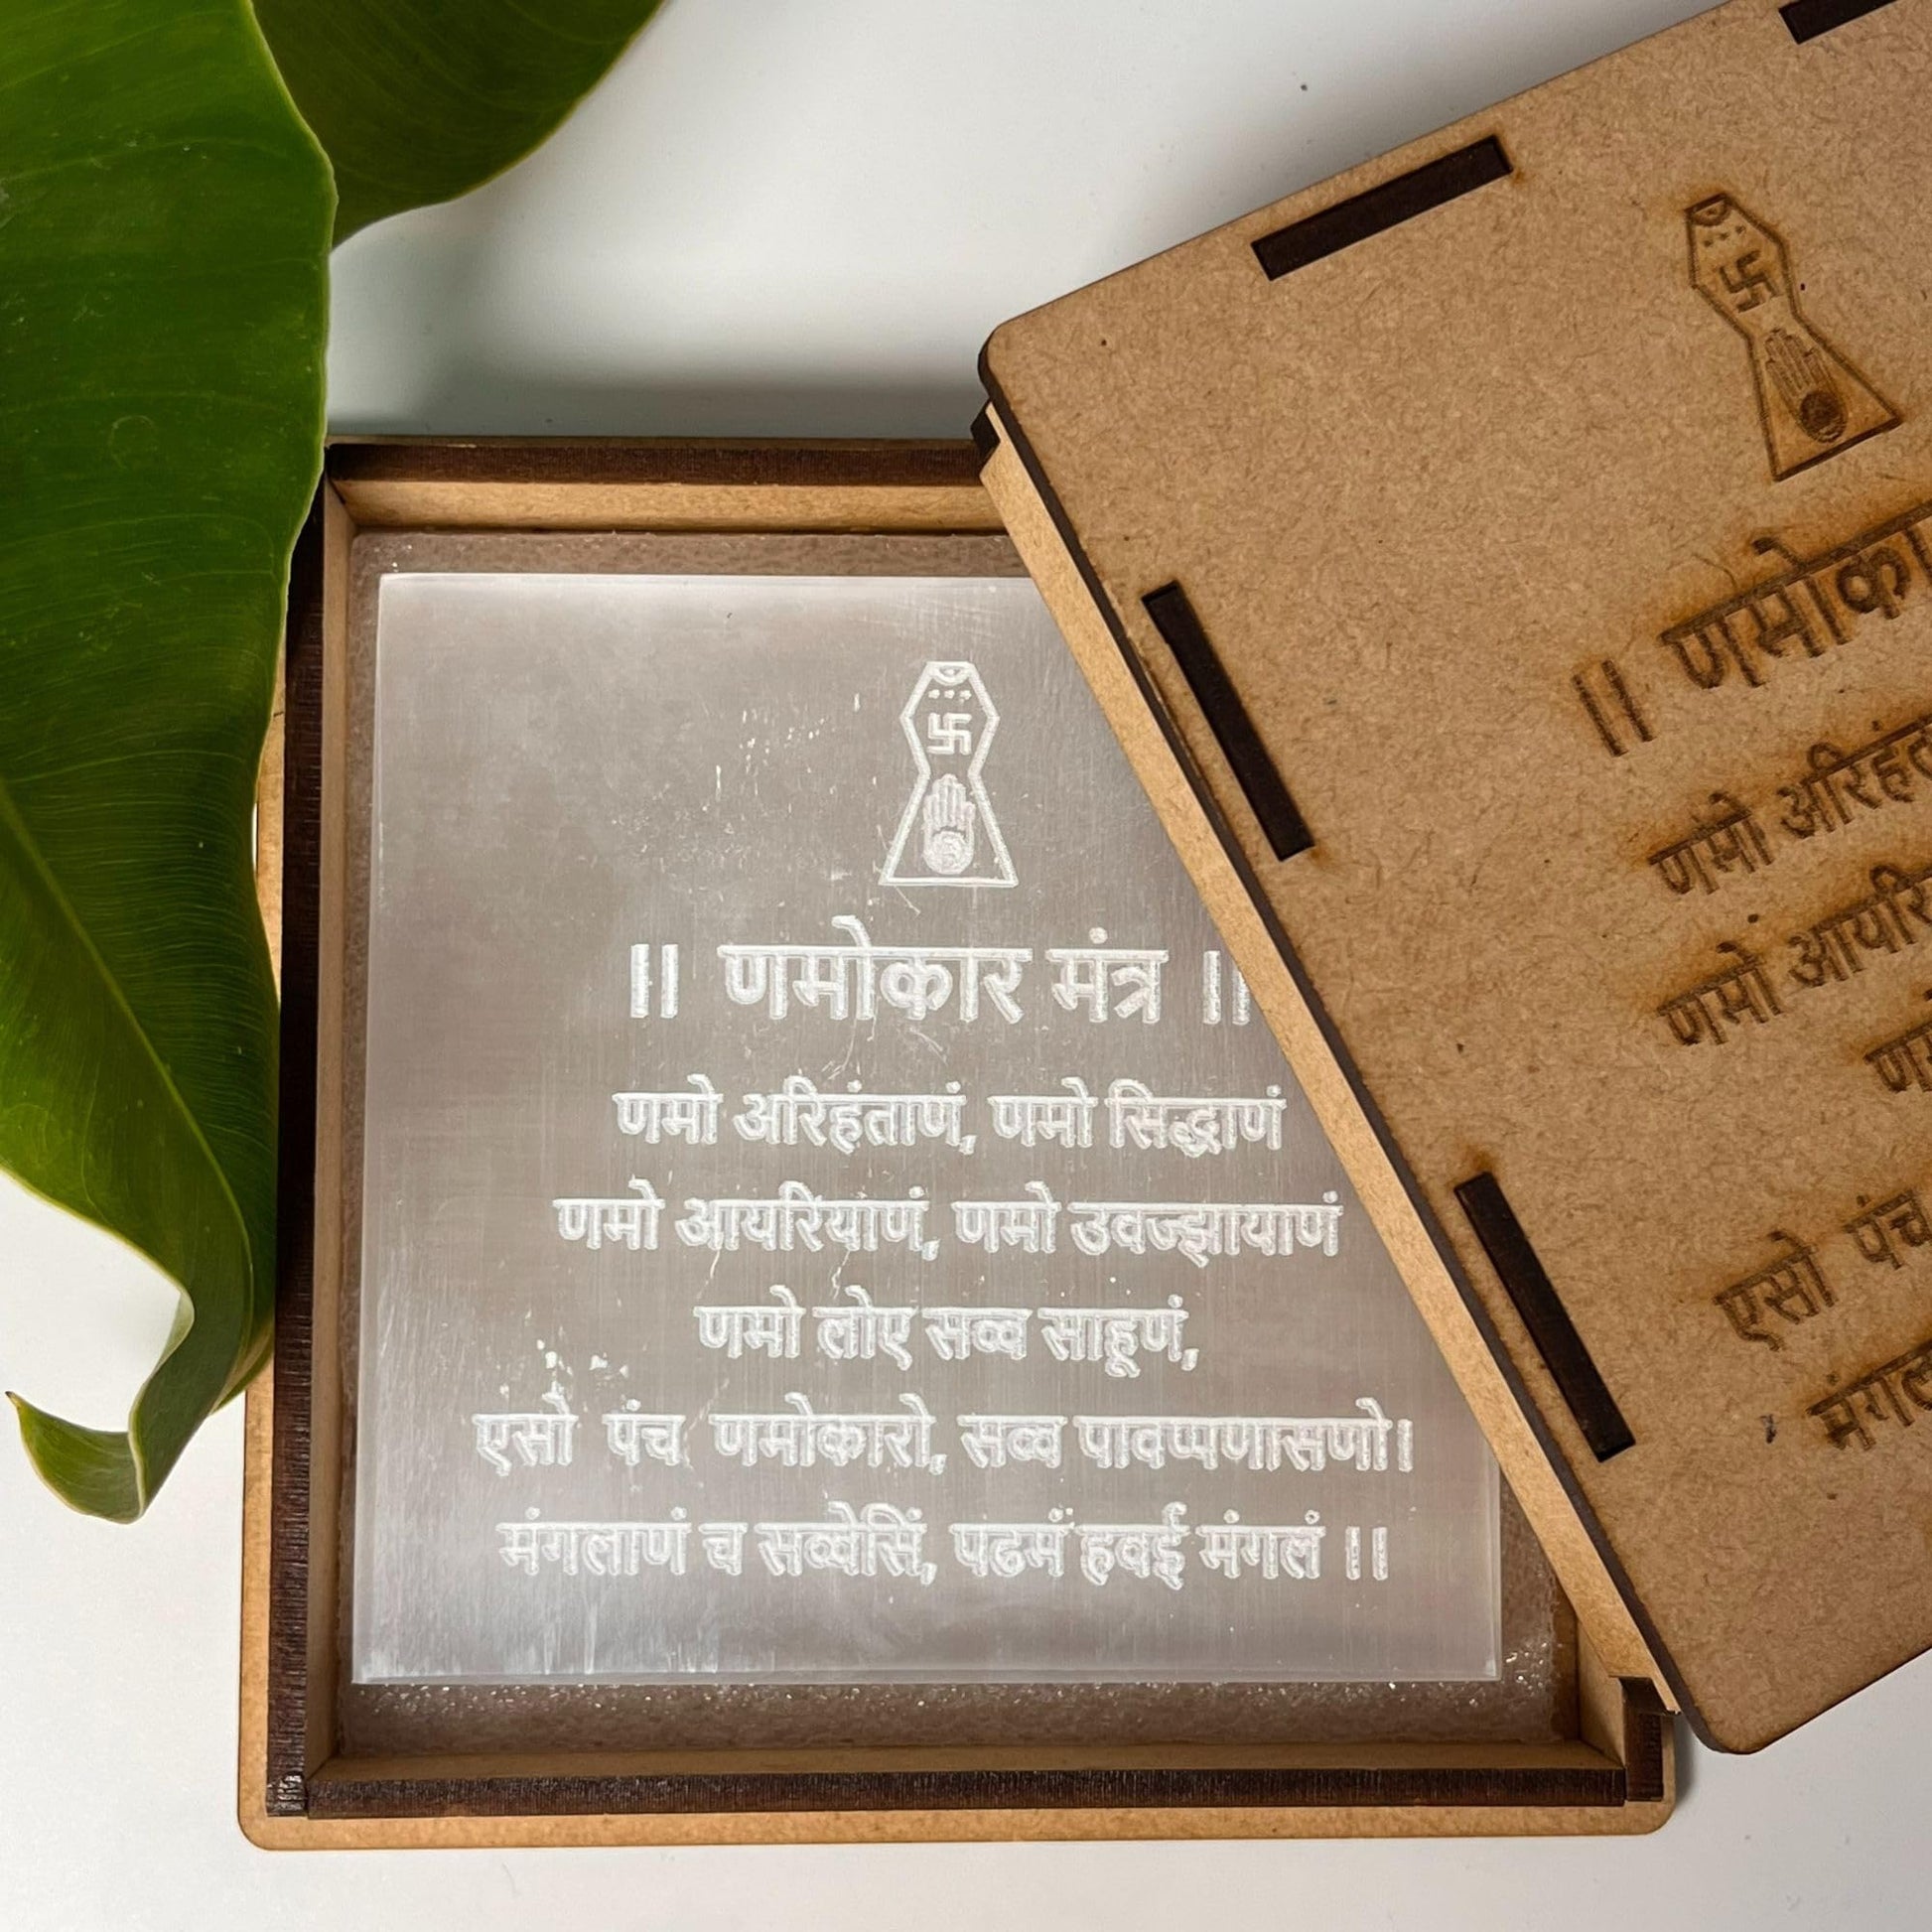 || णमोकार मंत्र ||
णमो अरिहंताणं, णमो सिद्धाणं
णमो आयरियाणं, णमो उवज्झायाणं
णमो लोए सव्व साहूणं,
एसो पंच णमोकारो, सव्व पावप्पणासणो।
मंगलाणं च सव्वेसिं, पढमं हवई मंगलं ||
|| णमोका
णमो अरिहंत
णमो आयरि
एसो पंच
मंगल